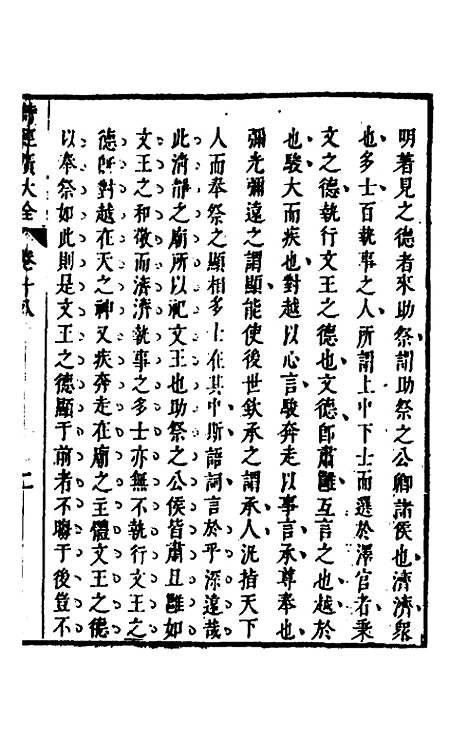 明著見之德者來助祭謂助祭之公卿諸侯也濟濟眾
也多士百執事之人所謂上中下士而選於澤宮者秉
文之德執行文王之德也文德卽肅雝互言之也越於
也駿大而疾也對越以心言駿奔走以事言承尊奉也
彌光彌遠之謂顯能使後世欽承之謂承人汎指天下
人而奉祭之顯相多士在其中斯語詞言於乎深遠哉
此淸靜之廟所以祀文王也助祭之公侯皆肅且雝如
文王之和敬而濟濟執事之多士亦無不執行文王之
德旣對越在天之神又疾奔走在廟之主體文王之德
以奉祭如此則是文王之德顯于前者不勝于後豈不
詩經廣大全 卷十八 二